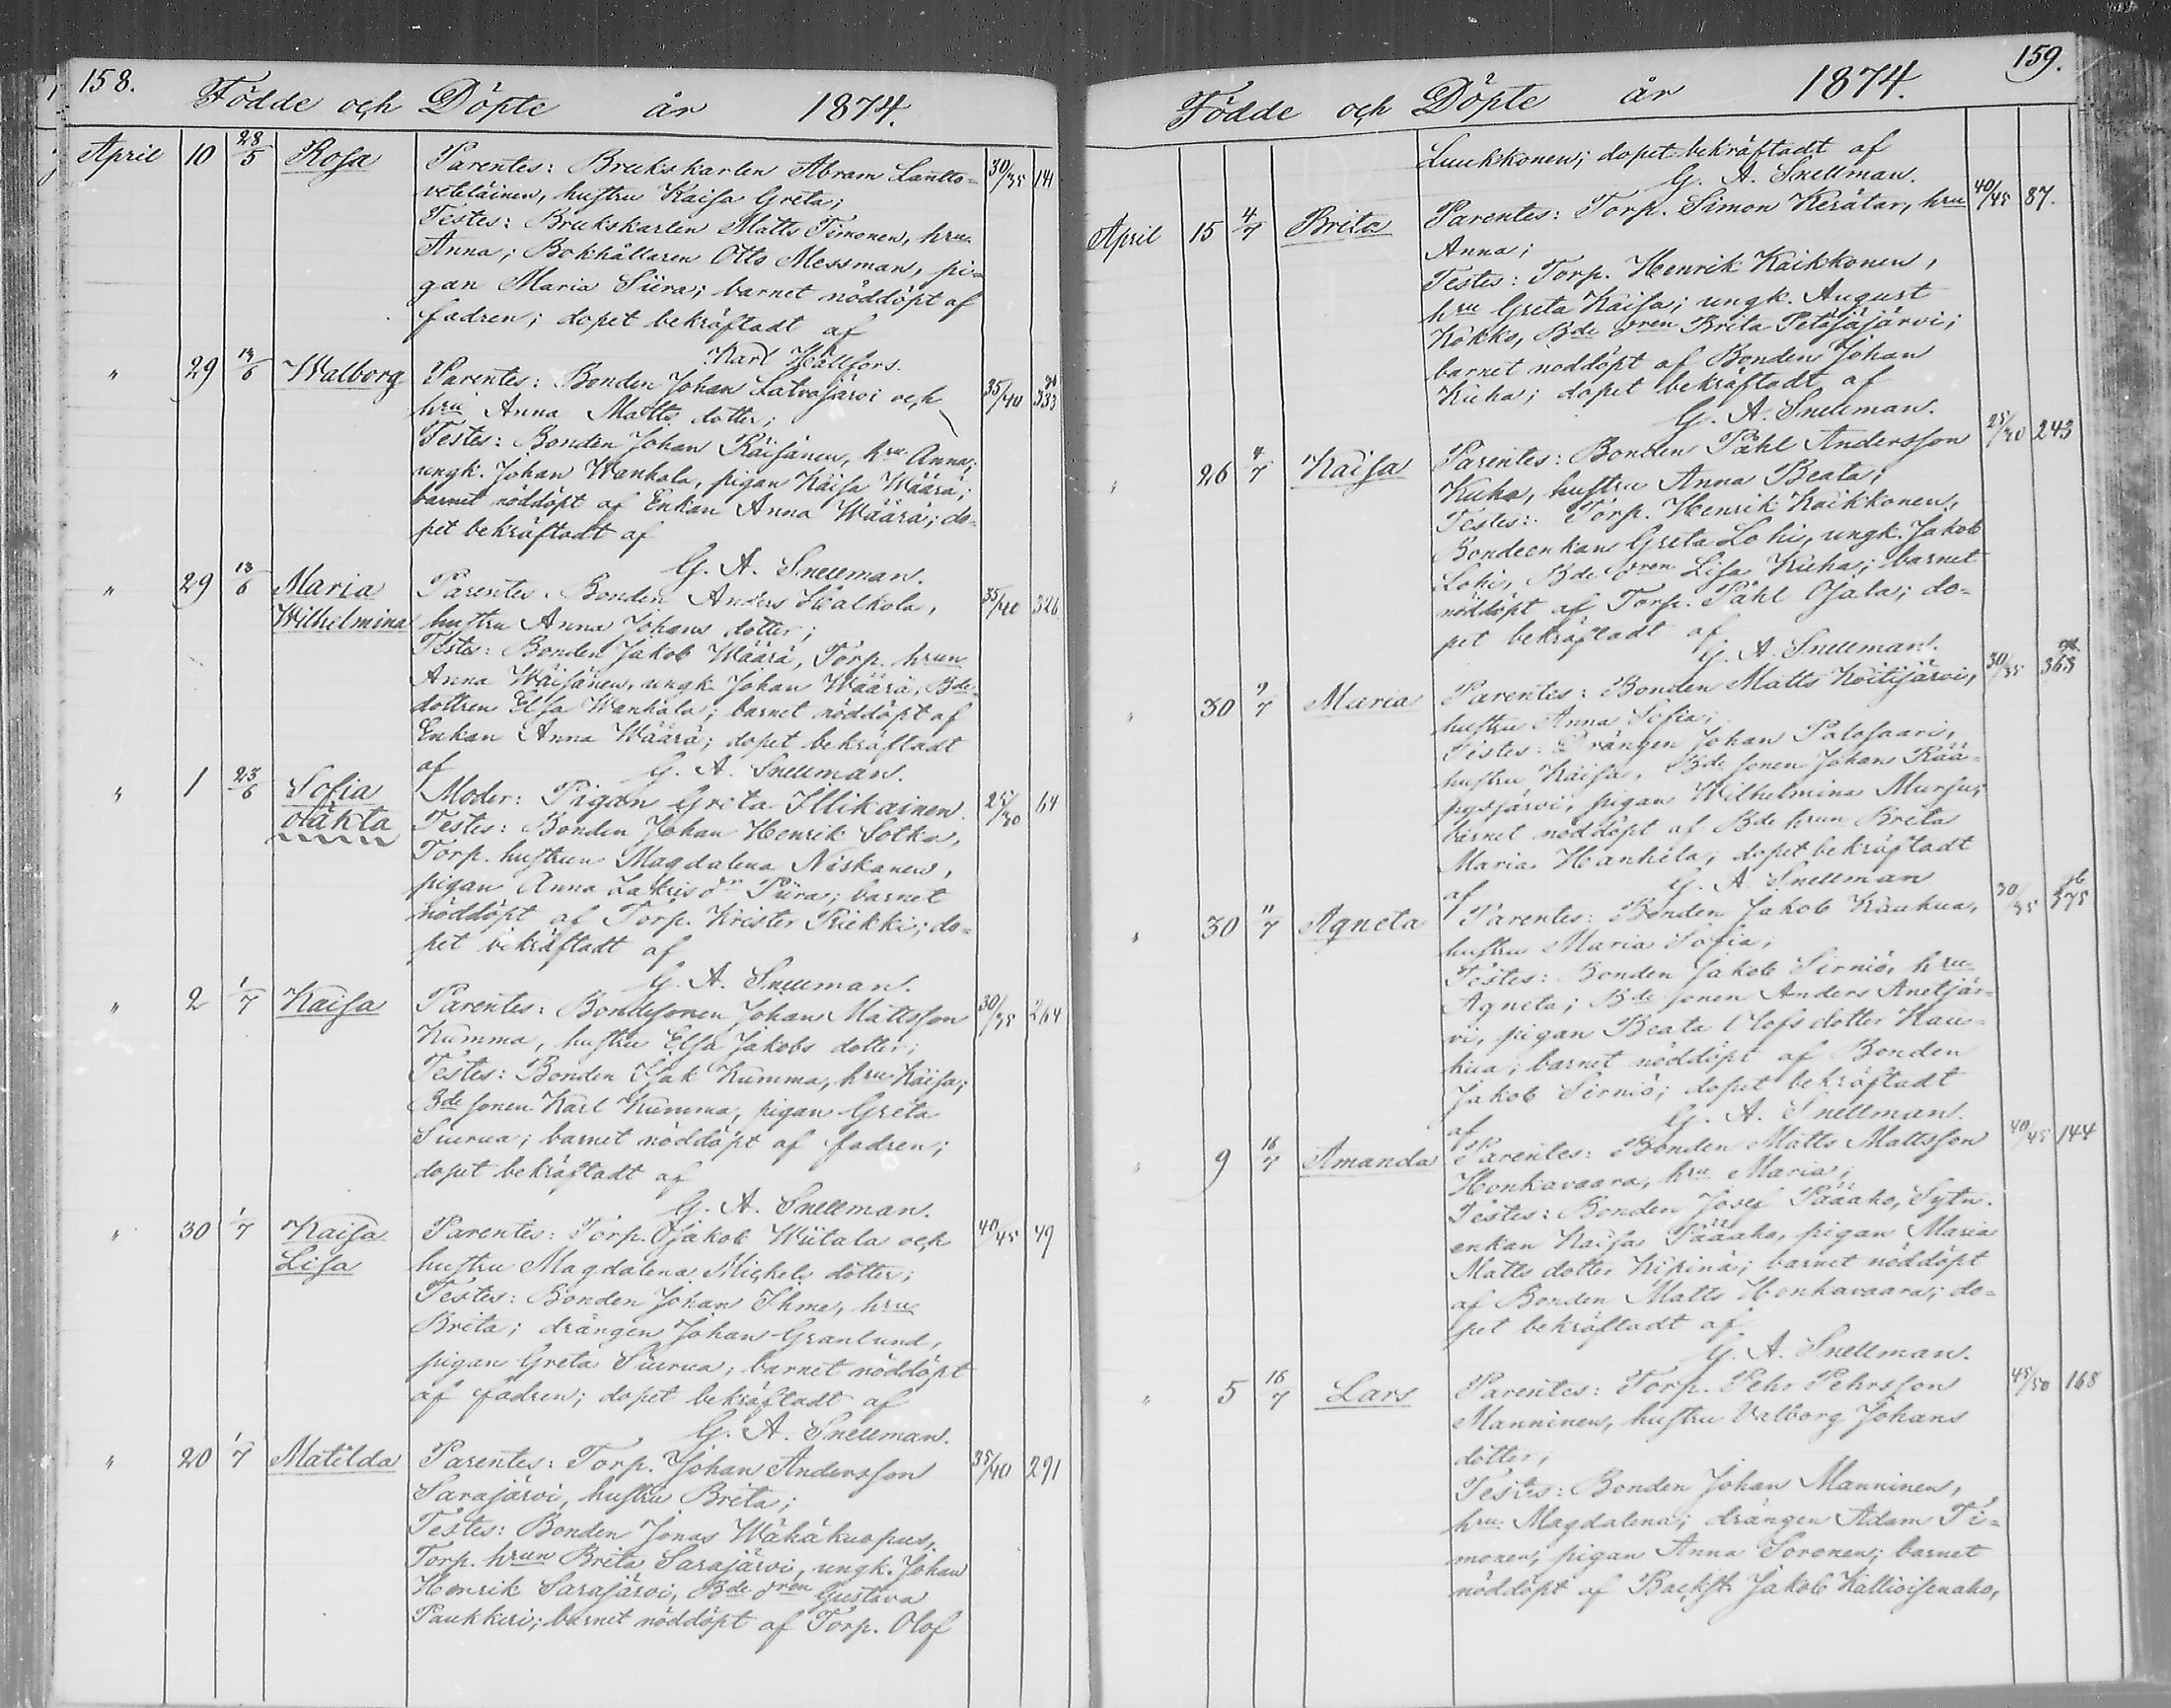 158.
Födde och Döpte år 1874.
April 10 28/5 Rosa Parentes: Brukskarlen Abram Lantto= 30/35 141
veteläinen, hustru Kaisa Greta;
Testes: Brukskarlen Matts Timonen, hru
Anna; Bokhållaren Otto Messman, pi=
gan Maria Siira; barnet nöddöpt af
fadren; dopet bekräftadt af
Karl Hällfors.
" 29 13/6 Walborg Parentes: Bonden Johan Latvajärvi och 35/40 333
hru Anna Matts dotter;
Testes: Bonden Johan Räisänen, hru Anna;
ungk. Johan Wanhala, pigan Kaisa Määrä;
barnet nöddöpt af Enkan Anna Määrä; do=
pet bekräftadt af
G. A. Snellman.
" 29 13/6 Maria Parentes Bonden Anders 35/40 326
Wilhelmina hustru Anna Johans dotter;
Testes: Bonden Jakob Määrä, Torp. hrun
Anna Wäisänen, ungk. Johan Määrä, Bde
dottren Elsa Wanhala; barnet nöddöpt af
Enkan Anna Määrä; dopet bekräftadt
af G. A. Snellman.
" 1 23/6 Sofia Moder: Pigan Greta Illikainen. 25/30 64
oäkta Testes: Bonden Johan Henrik Sotka,
Torp. hustrun Magdalena Niskanen,
pigan Anna Zakris dr Piira; barnet
nöddöpt af Torp. Krister Riekki; do=
pet bekräftadt af
G. A. Snellman.
" 2 1/7 Kaisa Parentes: Bondesonen Johan Mattsson 30/35 264
Kumma, hustru Elsa Jakobs dotter;
Testes: Bonden Isak Kumma, hru Kaisa;
Bde sonen Karl Kumma, pigan Greta
Siurua; barnet nöddöpt af fadren;
dopet bekräftadt af
G. A. Snellman.
" 30 1/7 Kaisa Parentes: Torp. Jakob Wiitala och 40/45 49
Lisa hustru Magdalena Michels dotter;
Testes: Bonden Johan Ihme, hru
Brita; drängen Johan Granlund,
pigan Greta Siurua; barnet nöddöpt
af fadren; dopet bekräftadt af
G. A. Snellman.
" 20 1/7 Matilda Parentes: Torp. Johan Andersson 35/40 291
Sarajärvi, hustru Brita;
Testes: Bonden Jonas Wähäkuopus,
Torp. hrun Brita Sarajärvi, ungk. Johan
Henrik Sarajärvi, Bde dren Gustava
Paukkeri; barnet nöddöpt af Torp. Olof
159.
Födde och Döpte år 1874.
Luukkonen; dopet bekräftadt af
G. A. Snellman.
April 15 4/7 Brita Parentes: Torp. Simon Kerätär, hru 40/45 87.
Anna;
Testes: Torp. Henrik Kaikkonen,
hru Greta Kaisa; ungk. August
Kokko, Bde dren Brita Petäjäjärvi;
barnet nöddöpt af Bonden Johan
Kuha; dopet bekräftadt af
G. A. Snellman.
" 26 4/7 Kaisa Parentes: Bonden Påhl Andersson 25/30 243
Kuha, hustru Anna Beata;
Testes: Torp. Henrik Kaikkonen,
Bondeenkan Greta Lohi, ungk. Jakob
Lohi, Bde dren Lisa Kuha; barnet
nöddöpt af Torp. Påhl Ojala; do=
pet bekräftadt af
G. A. Snellman.
" 30 9/7 Maria Parentes: Bonden Matts Koitijärvi, 30/35 363
hustru Anna Sofia;
Testes: Drängen Johan Palosaari,
hustru Kaisa, Bde sonen Johan Rää=
pysjärvi, pigan Wilhelmina Mursu;
barnet nöddöpt af Bde hrun Brita
Maria Hanhela; dopet bekräftadt
af G. A. Snellman
" 30 11/7 Agneta Parentes: Bonden Jakob Kauhua, 30/35 375
hustru Maria Sofia;
Testes: Bonden Jakob Sirniö, hru
Agneta; Bde sonen Anders Anetjär=
vi, pigan Beata Olofs dotter Kau=
hua; barnet nöddöpt af Bonden
Jakob Sirniö; dopet bekräftadt
af G. A. Snellman.
" 9 16/7 Amanda Parentes: Bonden Matts Mattsson 40/45 144
Honkavaara, hru Maria;
Testes: Bonden Josef Pääaho, Sytn.
enkan Kaisa Pääaho, pigan Maria
Matts dotter Kipinä; barnet nöddöpt
af Bonden Matts Honkavaara; do=
pet bekräftadt af
G. A. Snellman.
" 5 16/7 Lars Parentes: Torp. Pehr Pehrsson 45/50 168
Manninen, hustru Valborg Johans
dotter;
Testes: Bonden Johan Manninen,
hru Magdalena; drängen Adam Ti=
monen, pigan Anna Soronen; barnet
nöddöpt af Backst. Jakob Kallioisenaho,